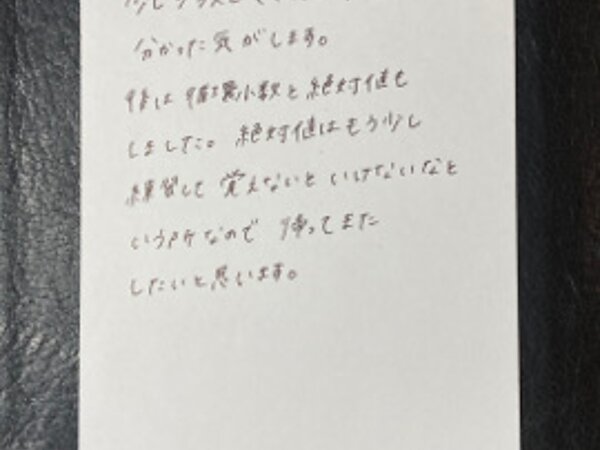 少し
分かった気がします。
後は循環小数と絶対値も
しました。絶対値はもう少し
練習して覚えないといけないなと
いう所なので帰ってまた
したいと思います。